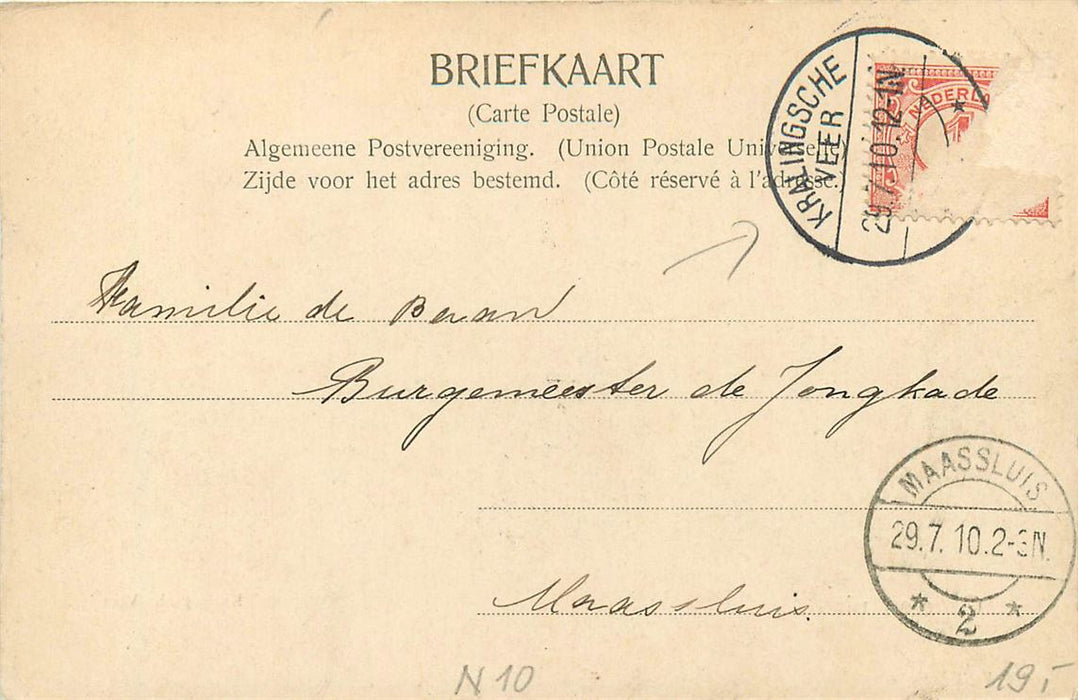 BRIEFKAART
(Carte Postale)
Algemeene Postvereeniging. (Union Postale Universelle)
Zijde voor het adres bestemd. (Côté réservé à l'adresse.)
KRALINGSCHE VEER
29.7.10.12-1N.
NEDERL
Familie de Baan
Burgemeester de Jongkade
Maassluis.
MAASSLUIS
29.7.10.2-3N.
* 2 *
N 10
19,-